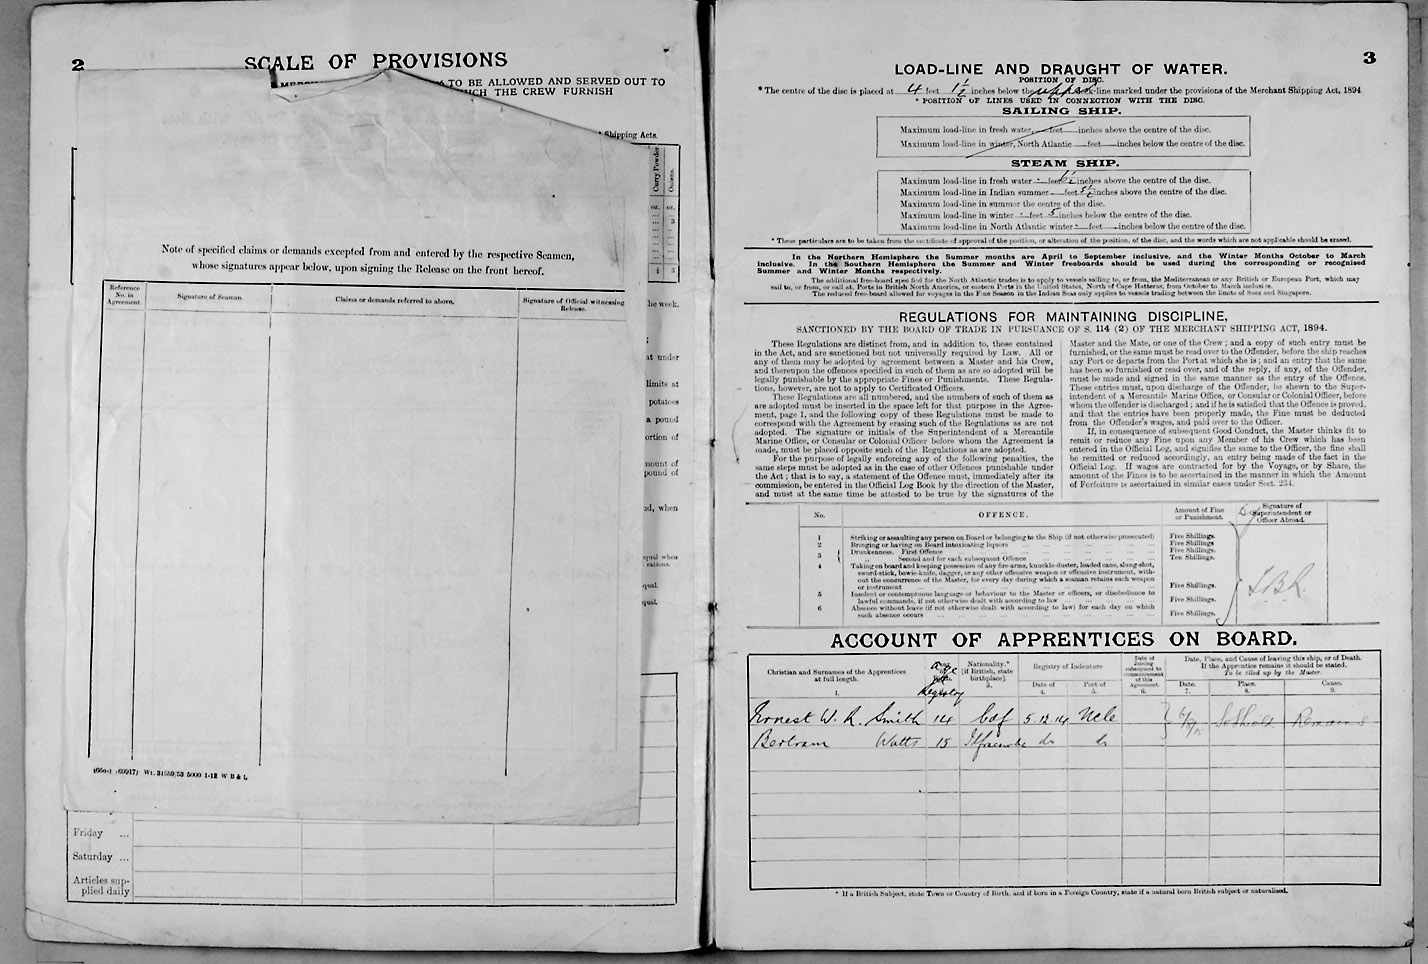 2
SCALE OF PROVISIONS
TO BE ALLOWED AND SERVED OUT TO
THE CREW FURNISH
Shipping Acts.
Curry Powder
Onions.
oz. oz.
he week.
at under
limits at
potatoes
a pound
ortion of
mount of
pound of
ed, when
equal when
rations.
qual.
qual.
Note of specified claims or demands excepted from and entered by the respective Seamen,
whose signatures appear below, upon signing the Release on the front hereof.
Reference No. in Agreement
Signature of Seaman.
Claims or demands referred to above.
Signature of Official witnessing Release.
Wt. 31659/53 5000 1-12 W B & L
Friday ...
Saturday ...
Articles sup-
plied daily
3
LOAD-LINE AND DRAUGHT OF WATER.
POSITION OF DISC.
* The centre of the disc is placed at 4 feet 1½ inches below the upper deck-line marked under the provisions of the Merchant Shipping Act, 1894
* POSITION OF LINES USED IN CONNECTION WITH THE DISC.
SAILING SHIP.
Maximum load-line in fresh water, feet inches above the centre of the disc.
Maximum load-line in winter, North Atlantic feet inches below the centre of the disc.
STEAM SHIP.
Maximum load-line in fresh water - feet 6½ inches above the centre of the disc.
Maximum load-line in Indian summer - feet 5½ inches above the centre of the disc.
Maximum load-line in summer the centre of the disc.
Maximum load-line in winter - feet 5 inches below the centre of the disc.
Maximum load-line in North Atlantic winter - feet - inches below the centre of the disc.
* These particulars are to be taken from the certificate of approval of the position, or alteration of the position, of the disc, and the words which are not applicable should be erased.
In the Northern Hemisphere the Summer months are April to September inclusive, and the Winter Months October to March
inclusive. In the Southern Hemisphere the Summer and Winter freeboards should be used during the corresponding or recognised
Summer and Winter Months respectively.
The additional free-board specified for the North Atlantic trades is to apply to vessels sailing to, or from, the Mediterranean or any British or European Port, which may
sail to, or from, or call at, Ports in British North America, or eastern Ports in the United States, North of Cape Hatteras, from October to March inclusive.
The reduced free-board allowed for voyages in the Fine Season in the Indian Seas only applies to vessels trading between the limits of Suez and Singapore.
REGULATIONS FOR MAINTAINING DISCIPLINE,
SANCTIONED BY THE BOARD OF TRADE IN PURSUANCE OF S. 114 (2) OF THE MERCHANT SHIPPING ACT, 1894.
These Regulations are distinct from, and in addition to, those contained
in the Act, and are sanctioned but not universally required by Law. All or
any of them may be adopted by agreement between a Master and his Crew,
and thereupon the offences specified in such of them as are so adopted will be
legally punishable by the appropriate Fines or Punishments. These Regula-
tions, however, are not to apply to Certificated Officers.
These Regulations are all numbered, and the numbers of such of them as
are adopted must be inserted in the space left for that purpose in the Agree-
ment, page 1, and the following copy of these Regulations must be made to
correspond with the Agreement by erasing such of the Regulations as are not
adopted. The signature or initials of the Superintendent of a Mercantile
Marine Office, or Consular or Colonial Officer before whom the Agreement is
made, must be placed opposite such of the Regulations as are adopted.
For the purpose of legally enforcing any of the following penalties, the
same steps must be adopted as in the case of other Offences punishable under
the Act; that is to say, a statement of the Offence must, immediately after its
commission, be entered in the Official Log Book by the direction of the Master,
and must at the same time be attested to be true by the signatures of the
Master and the Mate, or one of the Crew; and a copy of such entry must be
furnished, or the same must be read over to the Offender, before the ship reaches
any Port or departs from the Port at which she is; and an entry that the same
has been so furnished or read over, and of the reply, if any, of the Offender,
must be made and signed in the same manner as the entry of the Offence.
These entries must, upon discharge of the Offender, be shewn to the Super-
intendent of a Mercantile Marine Office, or Consular or Colonial Officer, before
whom the offender is discharged; and if he is satisfied that the Offence is proved,
and that the entries have been properly made, the Fine must be deducted
from the Offender's wages, and paid over to the Officer.
If, in consequence of subsequent Good Conduct, the Master thinks fit to
remit or reduce any Fine upon any Member of his Crew which has been
entered in the Official Log, and signifies the same to the Officer, the fine shall
be remitted or reduced accordingly, an entry being made of the fact in the
Official Log. If wages are contracted for by the Voyage, or by Share, the
amount of the Fines is to be ascertained in the manner in which the Amount
of Forfeiture is ascertained in similar cases under Sect. 234.
No. OFFENCE. Amount of Fine or Punishment. Signature of Superintendent or Officer Abroad.
1 Striking or assaulting any person on Board or belonging to the Ship (if not otherwise prosecuted) Five Shillings.
2 Bringing or having on Board intoxicating liquors Five Shillings
3 Drunkenness. First Offence Five Shillings.
Second and for each subsequent Offence Ten Shillings.
4 Taking on board and keeping possession of any fire-arms, knuckle-duster, loaded cane, slung-shot,
sword-stick, bowie-knife, dagger, or any other offensive weapon or offensive instrument, with-
out the concurrence of the Master, for every day during which a seaman retains such weapon
or instrument Five Shillings.
5 Insolent or contemptuous language or behaviour to the Master or officers, or disobedience to
lawful commands, if not otherwise dealt with according to law Five Shillings.
6 Absence without leave (if not otherwise dealt with according to law) for each day on which
such absence occurs Five Shillings.
ACCOUNT OF APPRENTICES ON BOARD.
Christian and Surnames of the Apprentices at full length. 1.
age
Nationality.* [if British, state birthplace]. 3.
Registry of Indenture
Date of 4.
Port of 5.
Date of Joining subsequent to commencement of this Agreement. 6.
Date, Place, and Cause of leaving this ship, or of Death.
If the Apprentice remains it should be stated.
To be filled up by the Master.
Date. 7.
Place. 8.
Cause. 9.
Ernest W. R. Smith 14 Cdf 5 12 14 Ncle Remains
Bertram Watts 15 Ilfracombe do do
* If a British Subject, state Town or Country of Birth, and if born in a Foreign Country, state if a natural born British subject or naturalised.